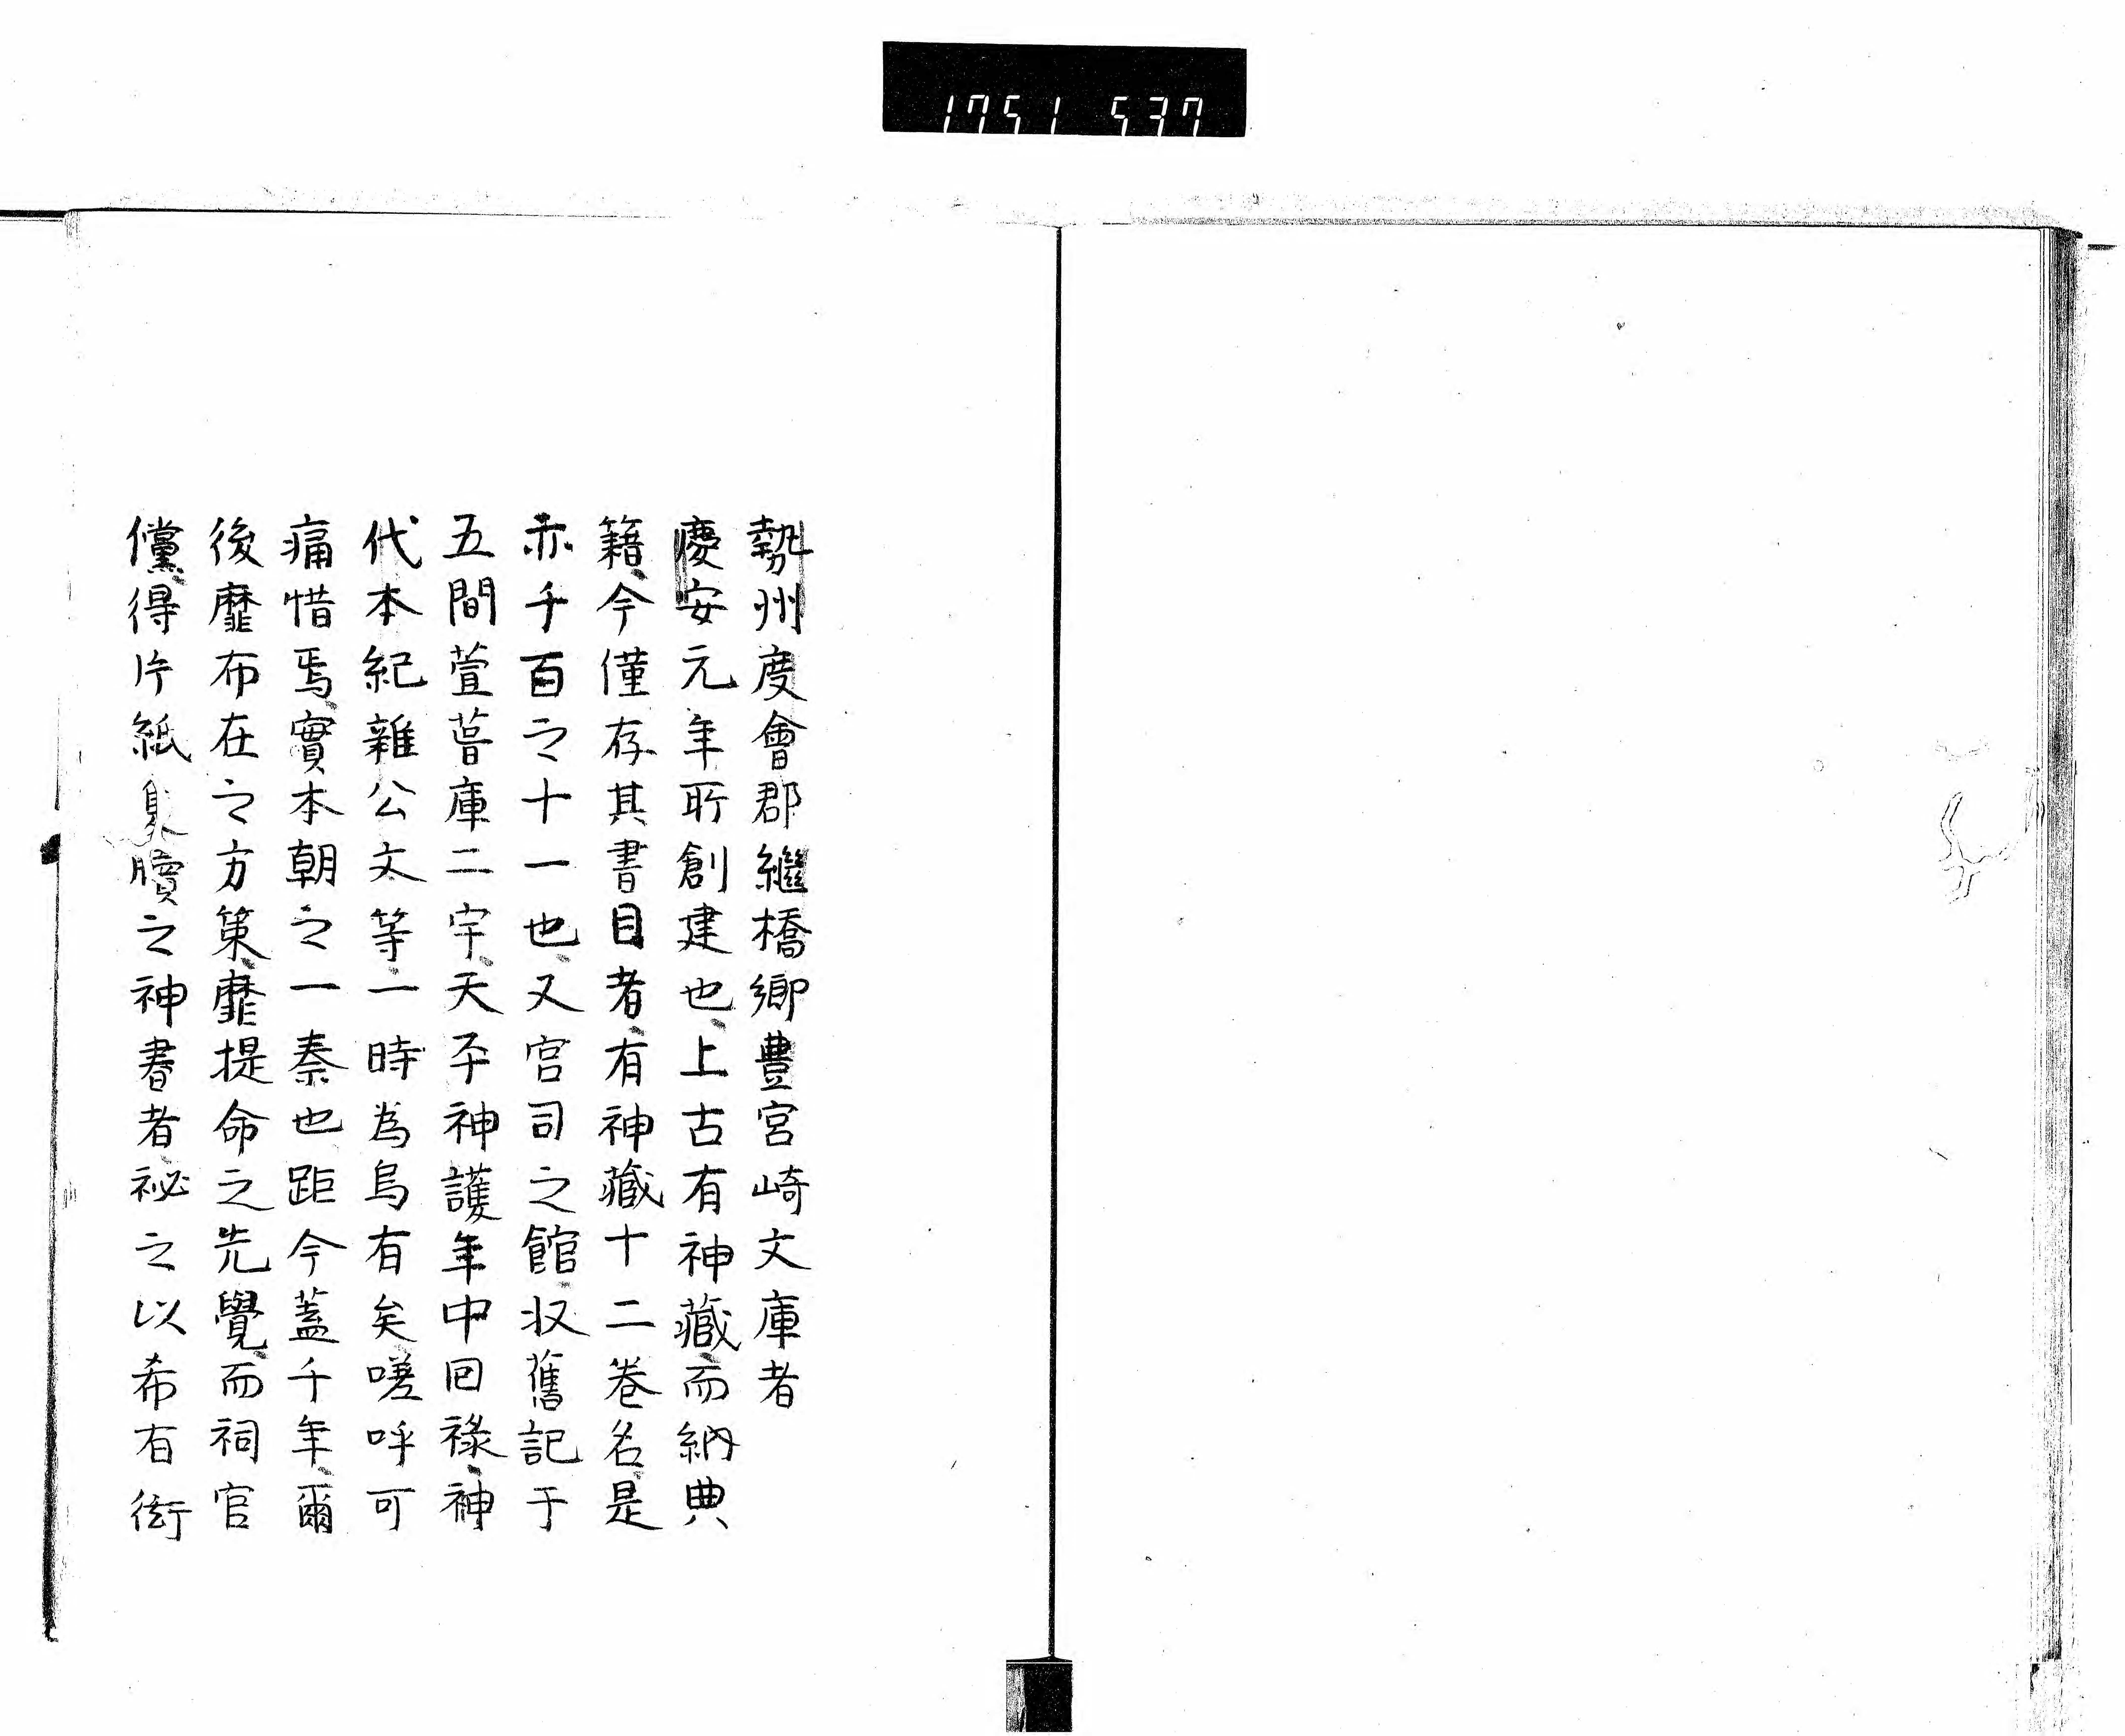 1751 537
勢州度會郡繼橋鄉豊宮崎文庫者
慶安元年所創建也、上古有神藏、而納典
籍、今僅存其書目者、有神藏十二卷名、是
亦千百之十一也、又宮司之館、収舊記于
五間萱葺庫二宇、天平神護年中回祿、神
代本紀雜公文等、一時為烏有矣、嗟呼可
痛惜焉、實本朝之一秦也、距今蓋千年、爾
後靡布在之方策、靡提命之先覺、而祠官
儻、得片紙隻牘之神書者、祕之以希有衒